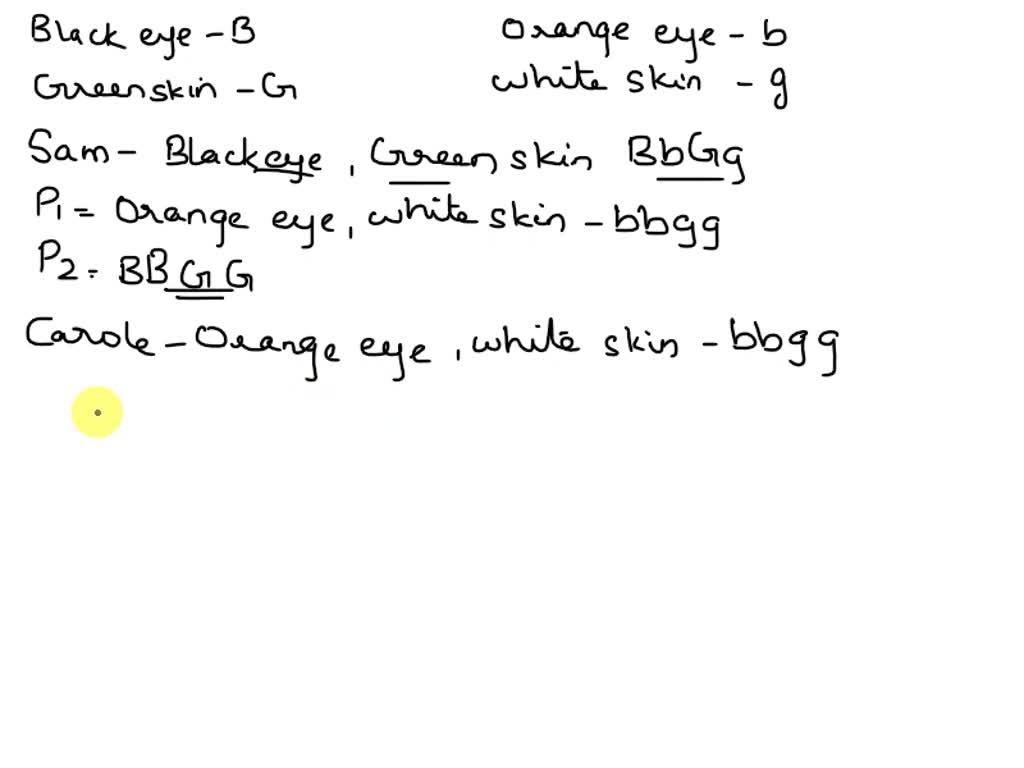 Black eye - B Orange eye - b
Green skin - G white skin - g
Sam - Black eye, Green skin BbGg
P1 = Orange eye, white skin - bbgg
P2 = BBGG
Carole - Orange eye, white skin - bbgg